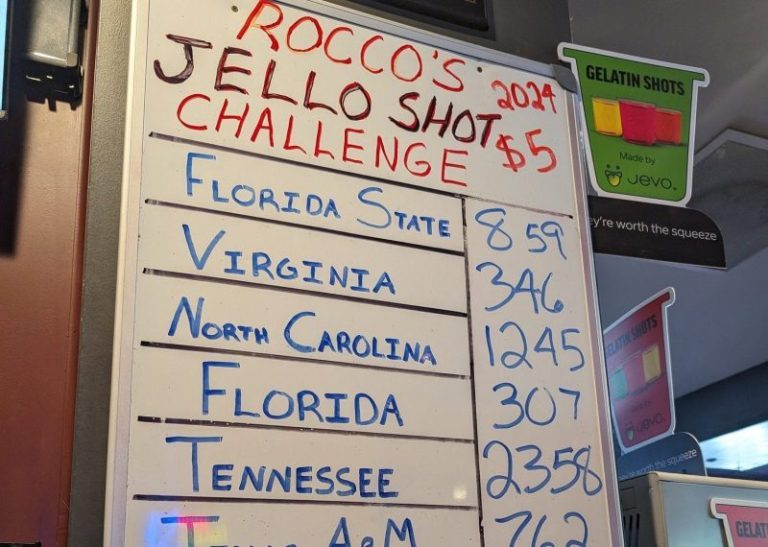 ROCCO'S
JELLO SHOT 2024
CHALLENGE $5
FLORIDA STATE 859
VIRGINIA 346
NORTH CAROLINA 1245
FLORIDA 307
TENNESSEE 2358
A&M 762
GELATIN SHOTS
Made by
JEVO.
they're worth the squeeze
GELATIN SHOTS
JEVO.
worth the squeeze
GELAT